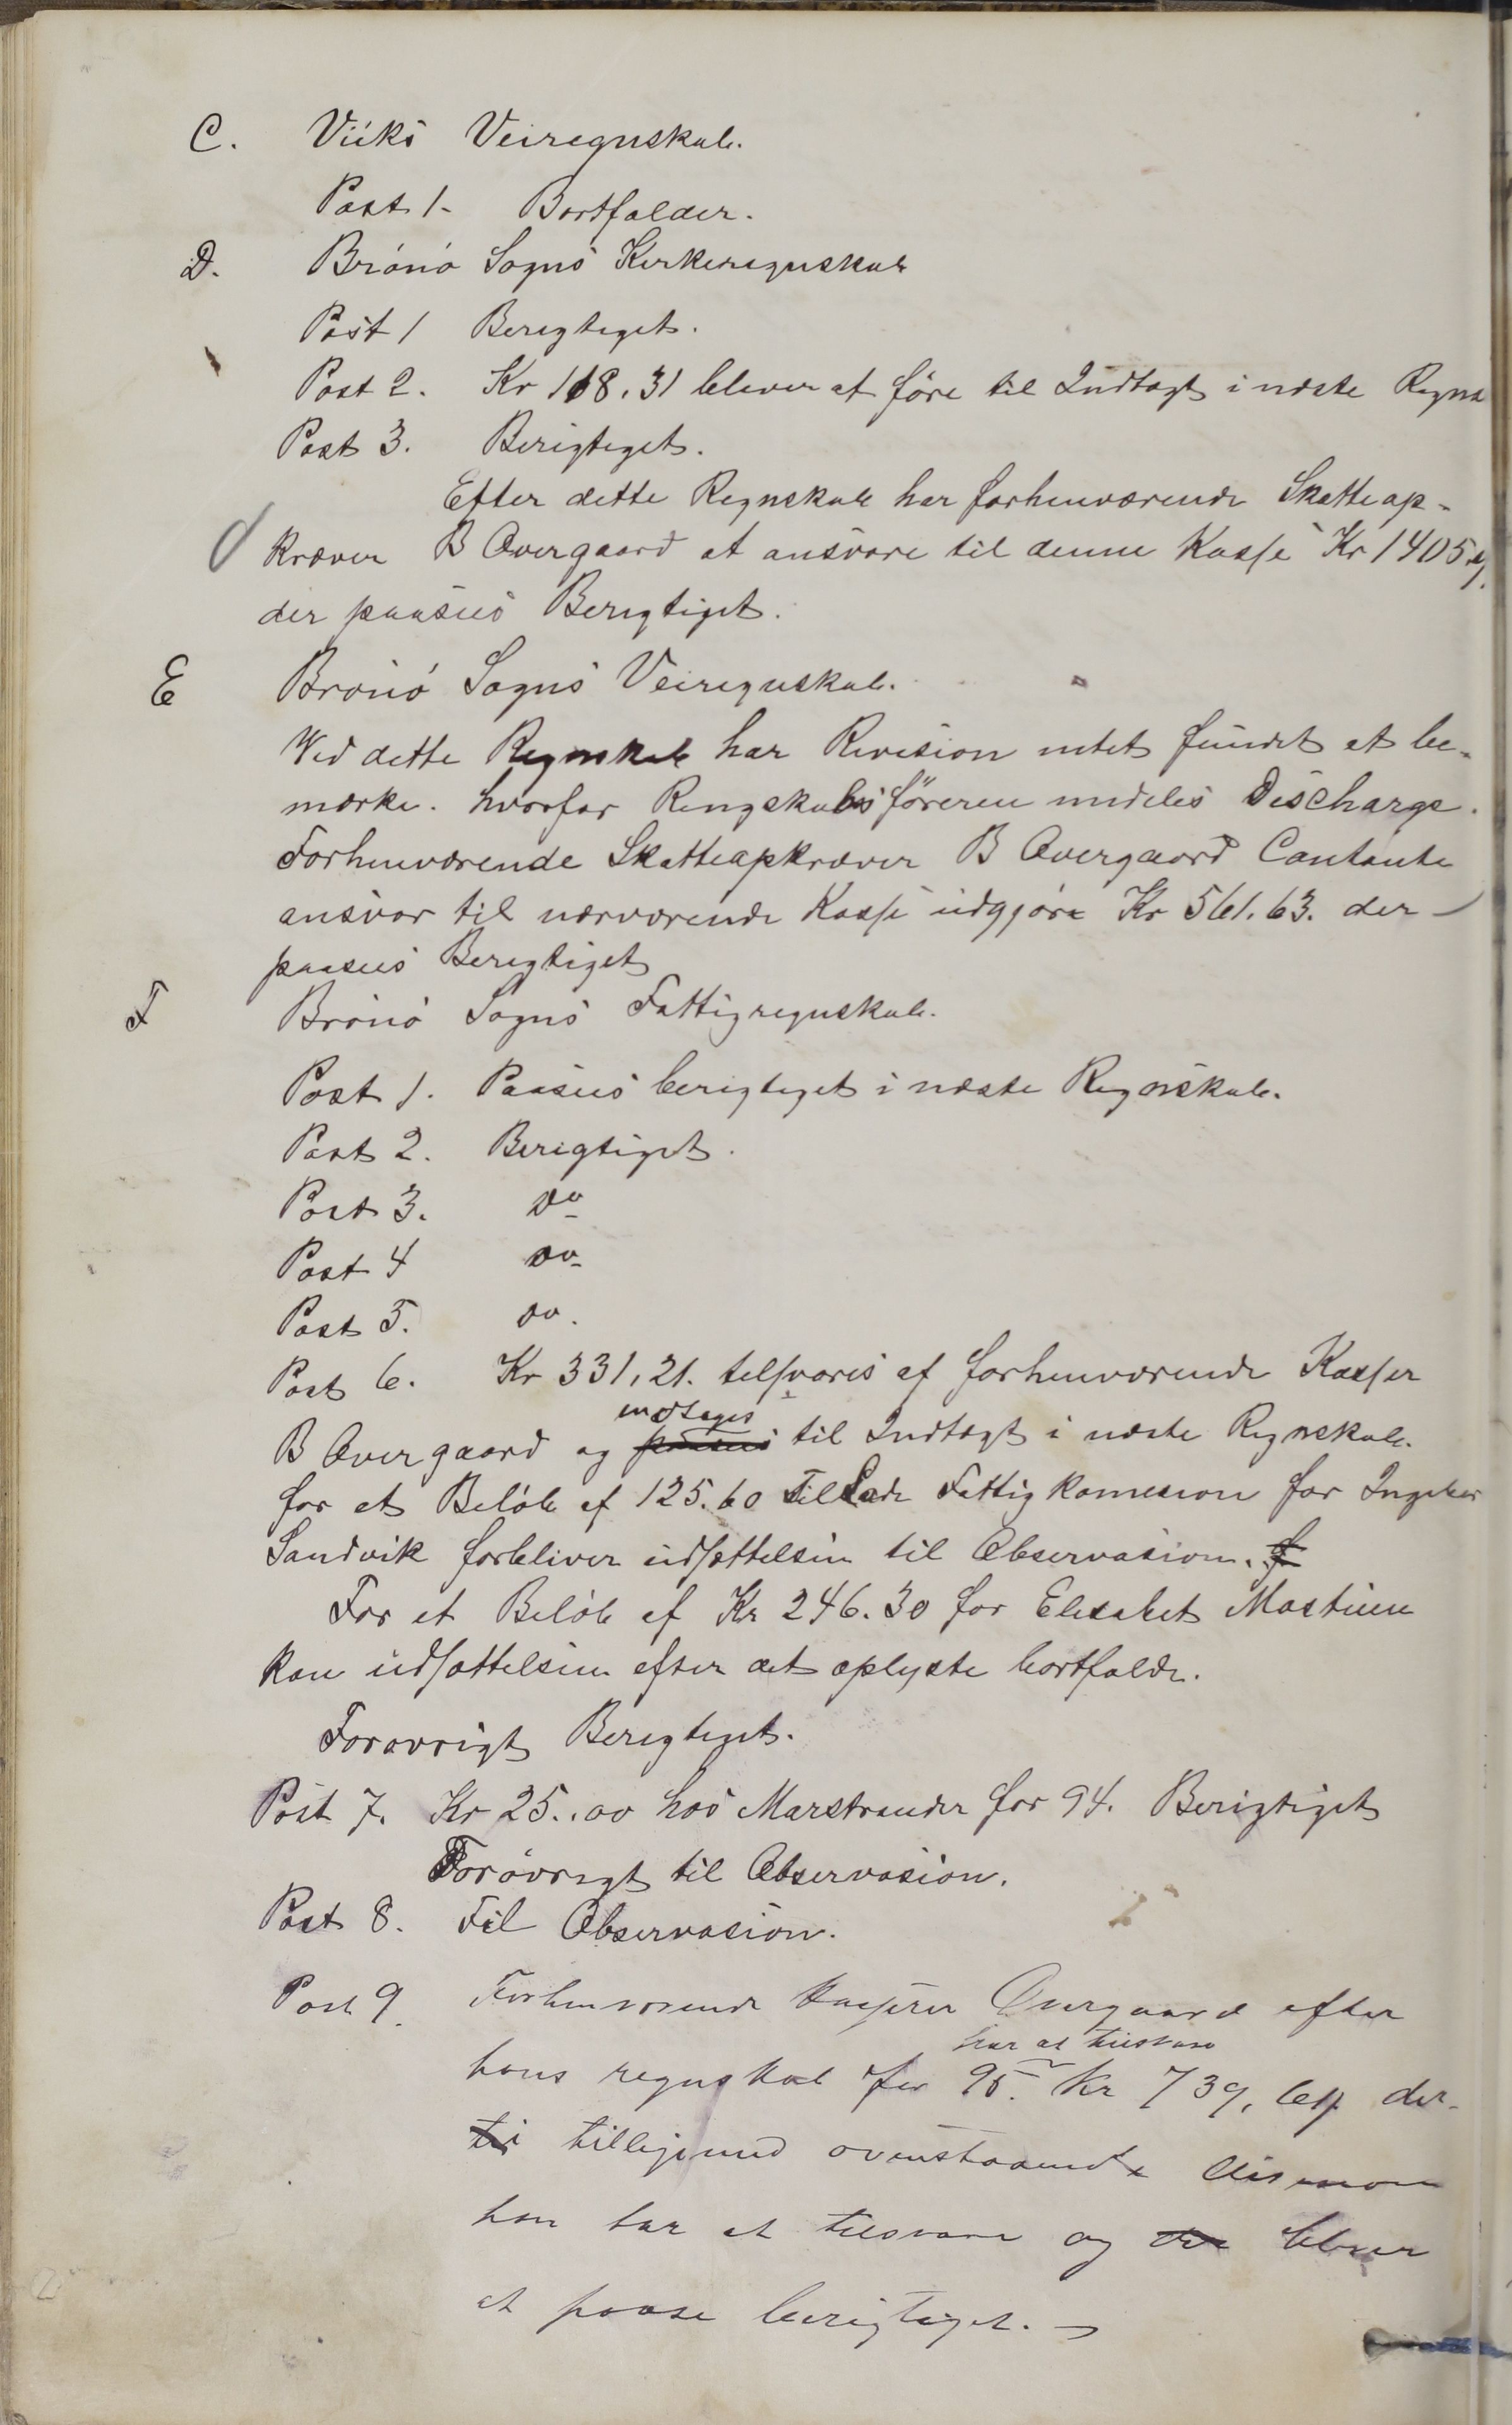 C. Viiks Veiregnskab.
Post 1. Bortfalder.
D. Brönö Sogns Kirkeregnskab
Post 1 Berigtiget.
Post 2. Kr 168.31 bliver at före til Indtægt i næste Regnsk
Post 3. Berigtiget.
Efter dette Regnskab har forhenværende Skatteop-
kræver B Overgaard at ansvare til denne Kasse Kr 1405
der paasees Berigtiget.
E Brönö Sogns Veiregnskab.
Ved dette Regnskab har Revision intet fundet at be-
mærke. hvorfor Rengskabsföreren meddeles Discharge.
Forhenværende Skatteopkræver B Overgaard Contante
ansvar til nærværende Kasse udgjöre Kr 561.63. der
paasees Berigtiget
F Brönö Sogns Fattigregnskab.
Post 1. Paasees berigtiget i næste Regnskab.
Post 2. Berigtiget.
Post 3. Do
Post 4 Do
Post 5. Do.
Post 6. Kr 331,21. tilsvaris af forhenværende Kasser
indtages
B Overgaard og paasees til Indtægt i næste Regnskab.
for et Belöb af 125.60 til Lade Fattigkomision for Ingebor
Sandvik forbliver udsættelsen til Observasion. f
For et Belöb af Kr 246.30 for Elisabet Mostuen
kan udsættelsen efter det oplyste bortfalde.
Forövrigt Berigtiget.
Post 7. Kr 25.00 hos Marstrander for 94. Berigtiget
Forövrigt til Observasion.
Post 8. Til Observasion.
Post 9. Forhenværende Kasserer Overgaard efter
har at tilsvare
hans regnskab for 95. Kr 739, der-
til tilligemed ovenstaaende
han har at tilsvare og der bliver
at paase berigtiget.